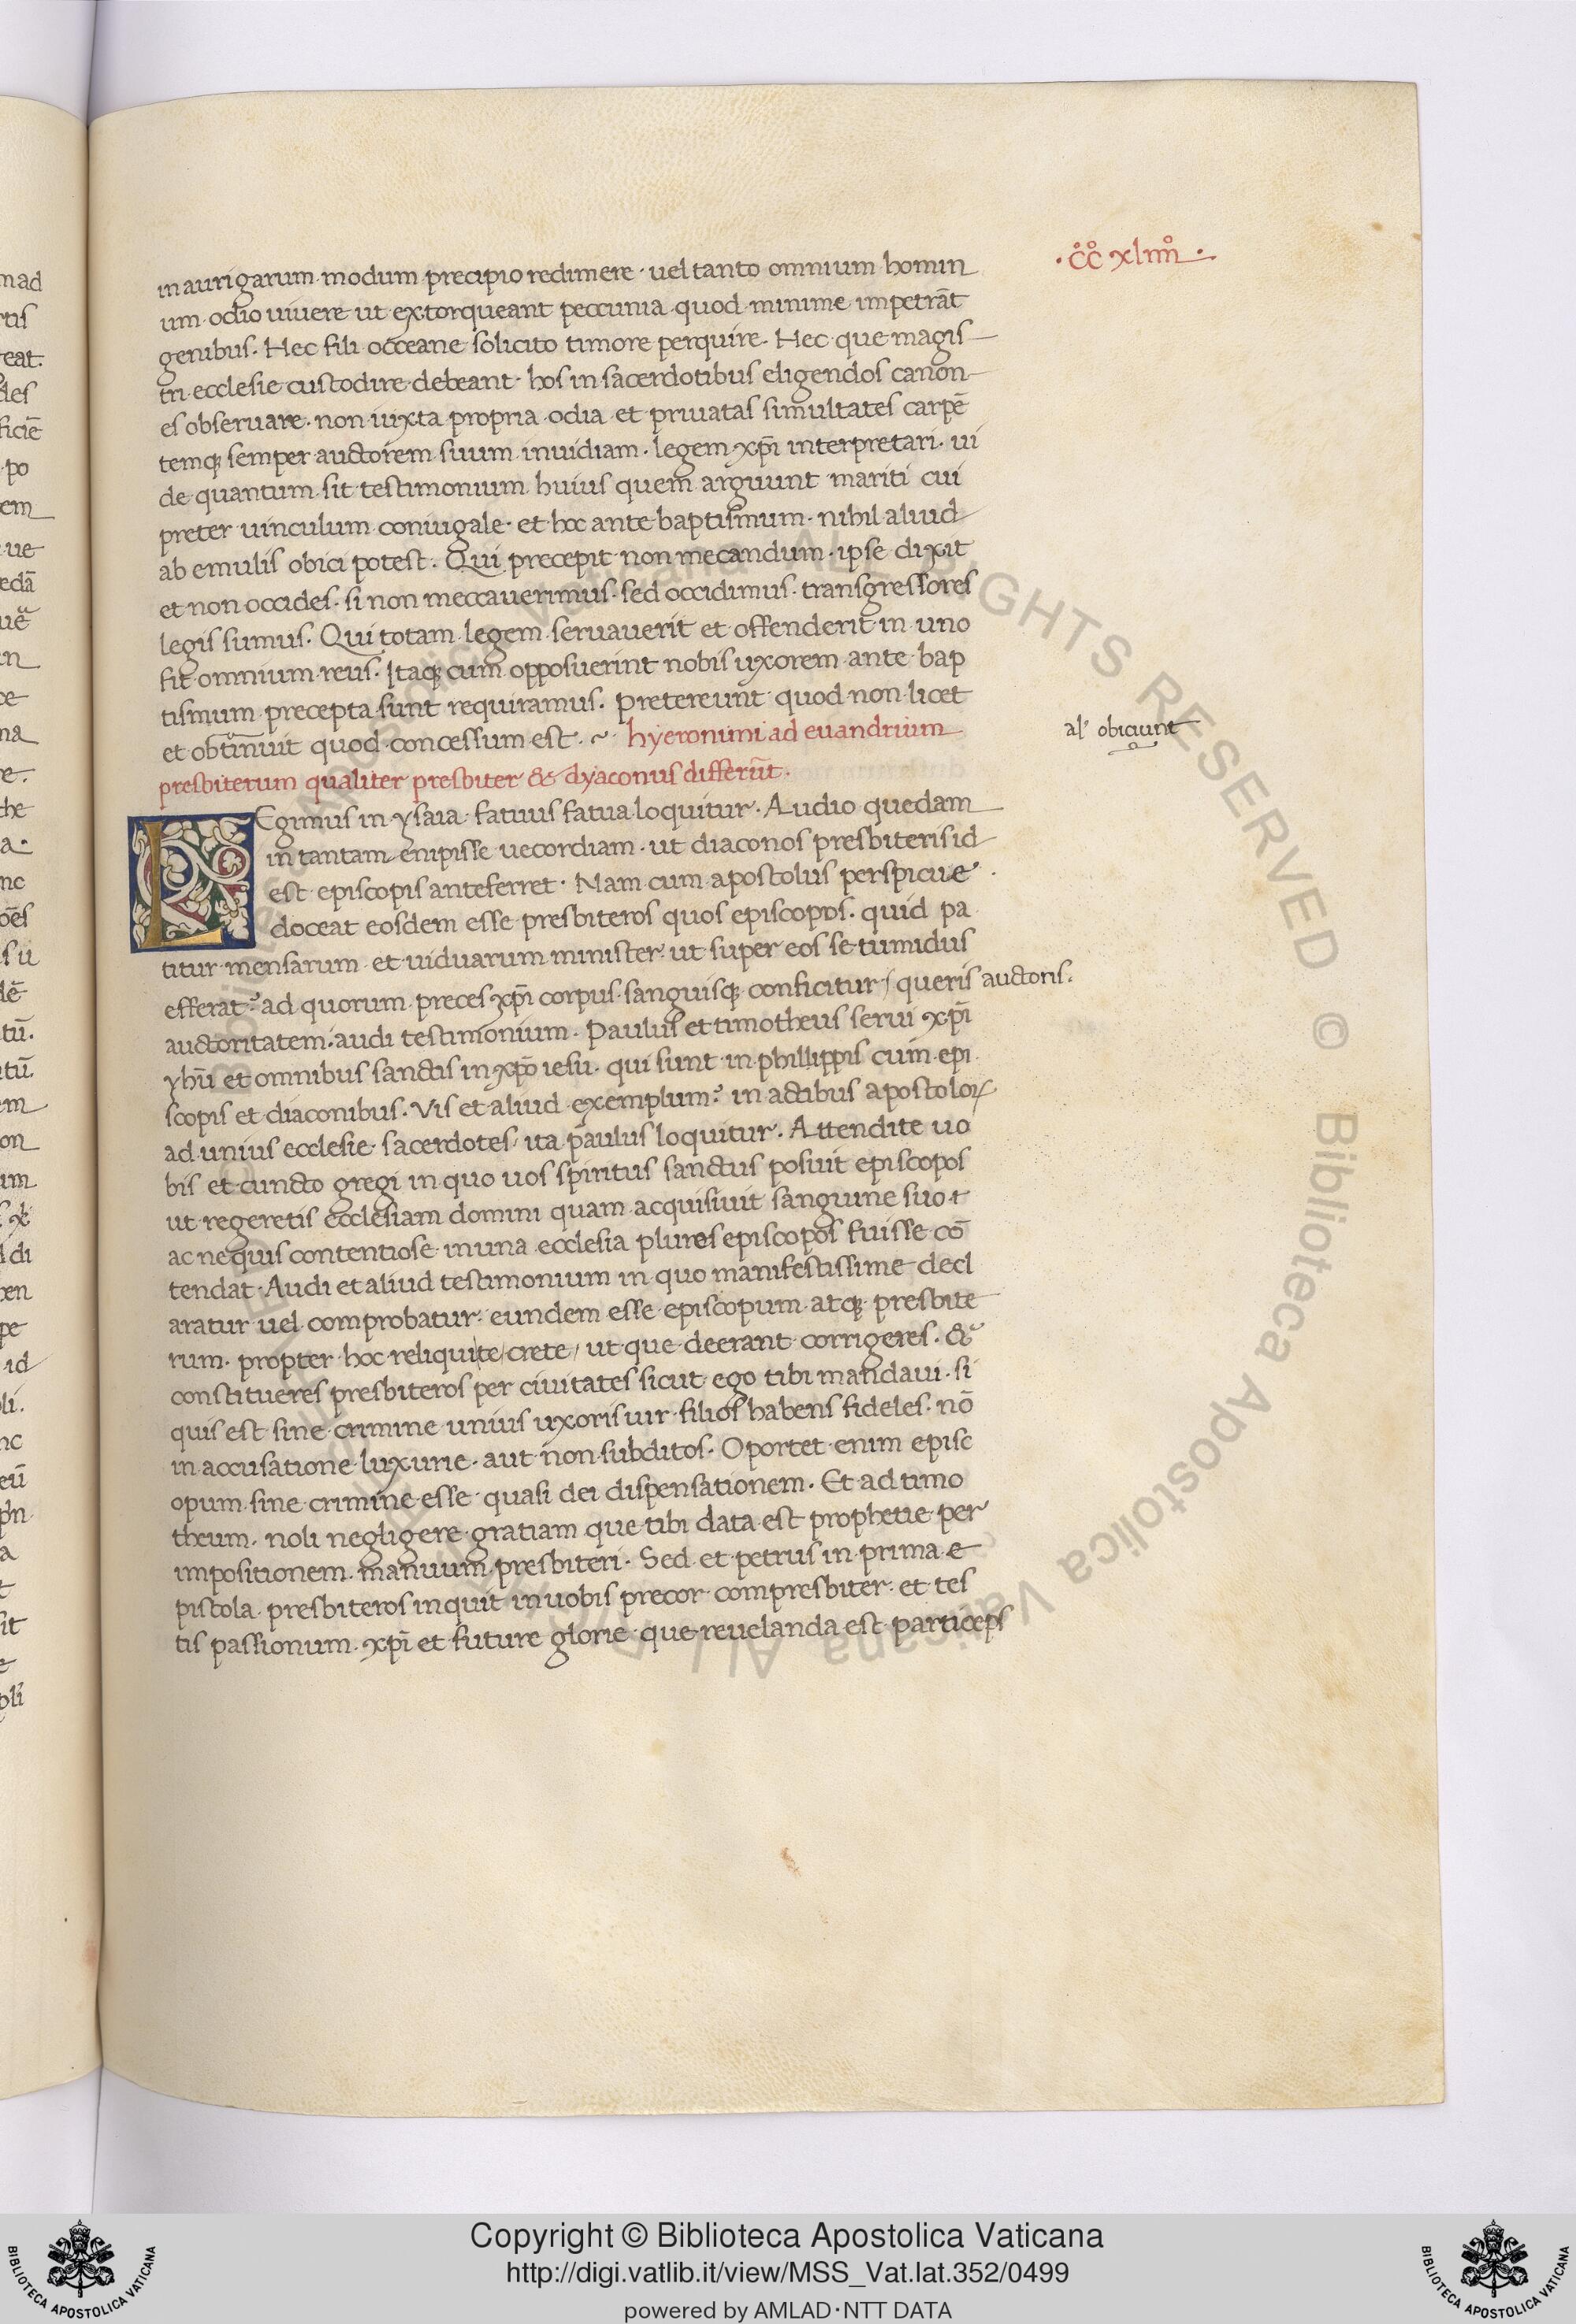 ·c̊c̊ xliiii̊·
in aurigarum modum precipio redimere· uel tanto omnium homin
um odio uiuere ut extorqueant peccunia quod minime impetrāt
genibus. Hec fili occeane solicito timore perquire. Hec que magis
tri ecclesie custodire debeant· hos in sacerdotibus eligendos canon
es obseruare. non iuxta propria odia et priuatas simultates carpē
temq; semper auctorem suum inuidiam. legem xp̄i interpretari. ui
de quantum sit testimonium huius quem arguunt mariti cui
preter uinculum coniugale· et hoc ante baptismum. nihil aliud
ab emulis obici potest. Qui precepit non mecandum. ipse dixit
et non occides. si non meccauerimus. sed occidimus. transgressores
legis sumus. Qui totam legem seruauerit et offenderit in uno
fit omnium reus. Itaq; cum opposuerint nobis uxorem ante bap
tismum precepta sunt requiramus. Pretereunt quod non licet
et obtinuit quod concessum est. ~ hyeronimi ad euandrium
al' obiciunt
presbiterum qualiter presbiter & dyaconus differūt.
LEgimus in ysaia fatuus fatua loquitur. Audio quedam
in tantam enipisse uecordiam. ut diaconos presbiteris id
est episcopis anteferret. Nam cum apostolus perspicue
doceat eosdem esse presbiteros quos episcopos. quid pa
titur mensarum et uiduarum minister ut super eos se tumidus
efferat? ad quorum preces xp̄i corpus sanguisq; conficitur/ queris auctoris.
auctoritatem: audi testimonium. Paulus et timotheus serui xp̄i
yhū et omnibus sanctis in xp̄o iesu. qui sunt in phillippis cum epi
scopis et diaconibus. Vis et aliud exemplum? in actibus apostoloꝝ
ad unius ecclesie sacerdotes/ ita paulus loquitur. Attendite uo
bis et cuncto gregi in quo uos spiritus sanctus posuit episcopos
ut regeretis ecclesiam domini quam acquisiuit sanguine suo
ac nequis contentiose in una ecclesia plures episcopos fuisse cō
tendat. Audi et aliud testimonium in quo manifestissime decl
aratur uel comprobatur eundem esse episcopum atq; presbite
rum. propter hoc reliqui te crete/ ut que deerant corrigeres. &
constitueres presbiteros per ciuitates sicut ego tibi mandaui. si
quis est sine crimine unius uxoris uir filios habens fideles. nō
in accusatione luxurie. aut non subditos. Oportet enim episc
opum sine crimine esse quasi dei dispensationem. Et ad timo
theum. noli negligere gratiam que tibi data est prophetie per
impositionem manuum presbiteri. Sed et petrus in prima e
pistola presbiteros inquit in uobis precor compresbiter et tes
tis passionum xp̄i et future glorie que reuelanda est particeps
Copyright © Biblioteca Apostolica Vaticana
http://digi.vatlib.it/view/MSS_Vat.lat.352/0499
powered by AMLAD·NTT DATA